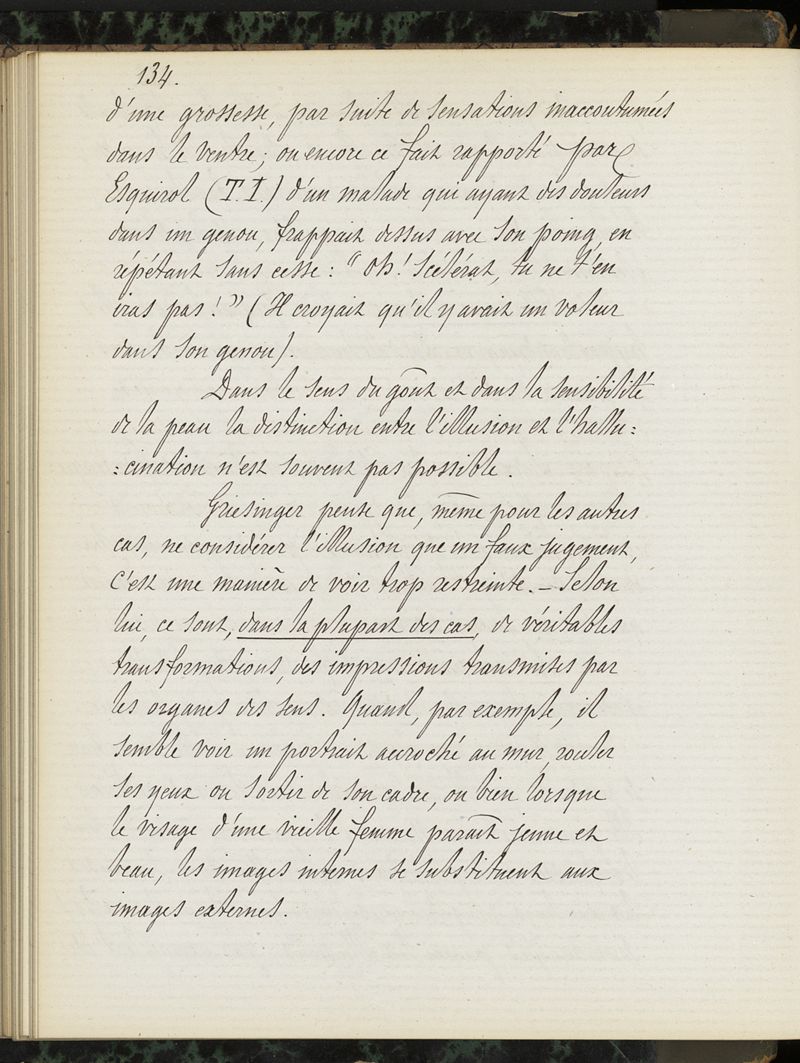 134.
d'une grossesse, par suite de sensations inaccoutumées
dans le ventre; ou encore ce fait rapporté par
Esquirol (T. I.) d'un malade qui ayant des douleurs
dans un genou, frappait dessus avec son poing, en
répétant sans cesse : "Oh! Scélérat, tu ne t'en
iras pas!" (Il croyait qu'il y avait un voleur
dans son genou).
Dans le sens du goût et dans la sensibilité
de la peau la distinction entre l'illusion et l'hallu:
:cination n'est souvent pas possible.
Griesinger pense que, même pour les autres
cas, ne considérer l'illusion que un faux jugement,
C'est une manière de voir trop restreinte. — Selon
lui, ce sont, dans la plupart des cas, de véritables
transformations, des impressions transmises par
les organes des sens. Quand, par exemple, il
semble voir un portrait accroché au mur, rouler
ses yeux ou sortir de son cadre, ou bien lorsque
le visage d'une vieille femme paraît jeune et
beau, les images internes se substituent aux
images externes.